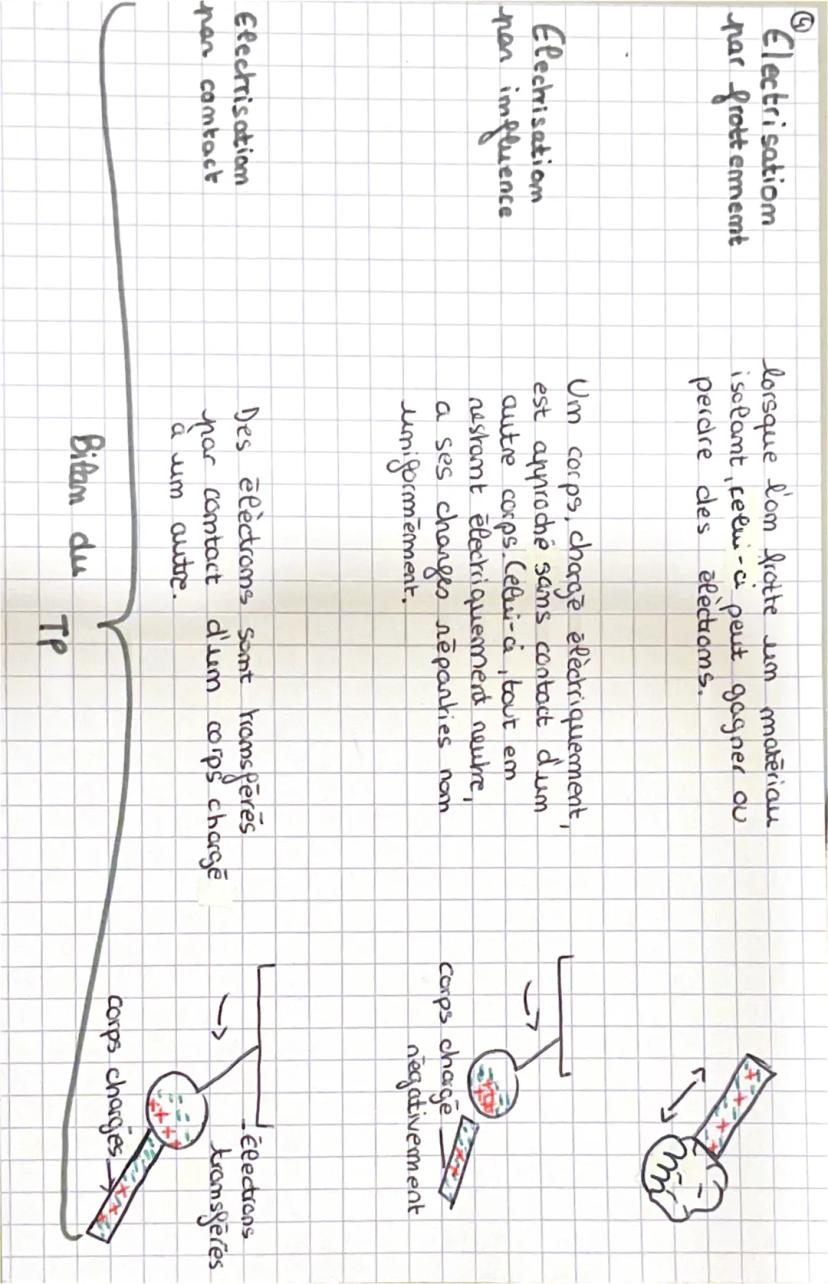 ④
Électrisation
par frottement
lorsque l'on frotte un matériau
isolant, celui-ci peut gagner ou
perdre des électrons.
Électrisation
par influence
Un corps, chargé électriquement,
est approché sans contact d'un
autre corps. Celui-ci, tout en
restant électriquement neutre,
a ses charges réparties non
uniformément.
corps chargé
négativement
Electrisation
par contact
Des électrons sont transférés
par contact d'un corps chargé
à un autre.
électrons
transférés
corps chargés
Bilan du
TP